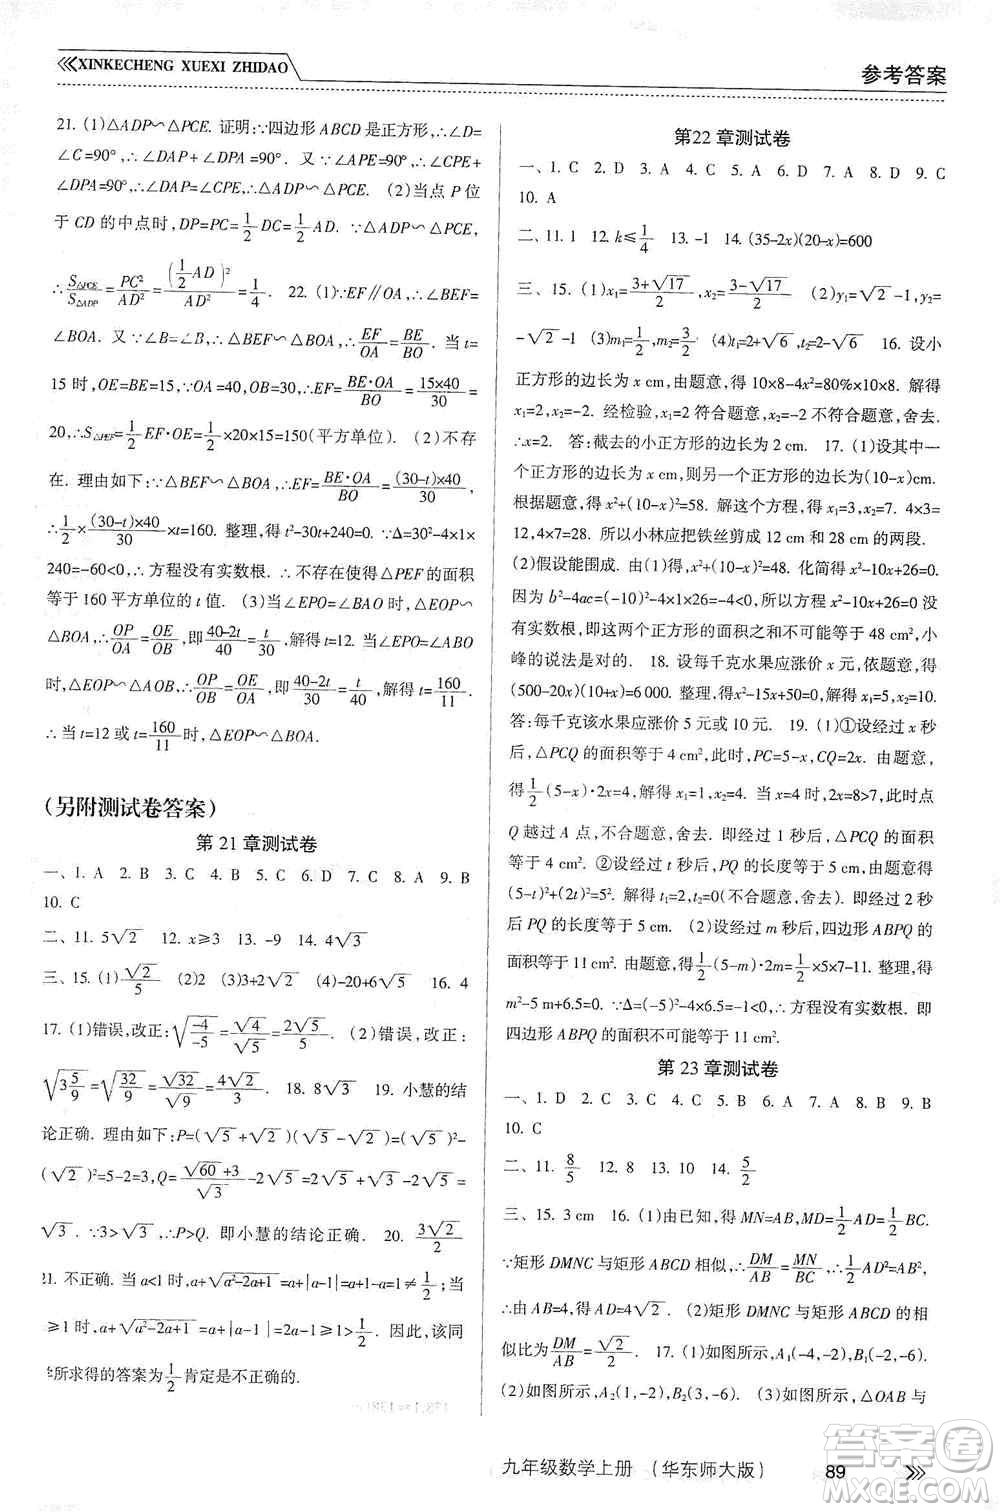 XINKECHENG XUEXI ZHIDAO
参考答案
21. (1)△ADP∽△PCE. 证明:∵四边形 ABCD 是正方形,∴∠D=
∠C=90°,∴∠DAP+∠DPA=90°. 又∵∠APE=90°,∴∠CPE+
∠DPA=90°,∴∠DAP=∠CPE,∴△ADP∽△PCE. (2)当点 P 位
于 CD 的中点时,DP=PC=1/2 DC=1/2 AD. ∵△ADP∽△PCE,
∴S△PCE/S△ADP=PC²/AD²=(1/2 AD)²/AD²=1/4. 22. (1)∵EF∥OA,∴∠BEF=
∠BOA. 又∵∠B=∠B,∴△BEF∽△BOA,∴EF/OA=BE/BO. 当 t=
15 时,OE=BE=15. ∵OA=40,OB=30,∴EF=BE·OA/BO=15×40/30=
20,∴S△PEF=1/2 EF·OE=1/2×20×15=150(平方单位). (2)不存
在. 理由如下:∵△BEF∽△BOA,∴EF=BE·OA/BO=(30-t)×40/30,
∴1/2×(30-t)×40/30×t=160. 整理,得 t²-30t+240=0. ∵30²-4×1×
240=-60<0,∴方程没有实数根. ∴不存在使得△PEF 的面积
等于 160 平方单位的 t 值. (3)当∠EPO=∠BAO 时,△EOP∽
△BOA,∴OP/OA=OE/OB,即40-2t/40=t/30,解得 t=12. 当∠EPO=∠ABO
时,△EOP∽△AOB,∴OP/OB=OE/OA,即40-2t/30=t/40,解得 t=160/11.
∴当 t=12 或 t=160/11时,△EOP∽△BOA.
(另附测试卷答案)
第 21 章测试卷
一、1. A 2. B 3. B 4. C 5. D 6. D 7. C 8. A 9. B
10. C
二、11. 5√2 12. x≥3 13. -9 14. 4√3
三、15. (1)√2/5 (2)2 (3)3+2√2 (4)-20+6√5 16. 4
17. (1)错误,改正:√(-4/-5)=√4/√5=2√5/5. (2)错误,改正:
√(3 5/9)=√(32/9)=√32/√9=4√2/3. 18. 8√3 19. 小慧的结
论正确. 理由如下:P=(√5+√2)(√5-√2)=(√5)²-
(√2)²=5-2=3,Q=√60+3/√3-2√5=√3+2√5-2√5=
√3. ∵3>√3,∴P>Q. 即小慧的结论正确. 20. 3√2/2
21. 不正确. 当 a<1 时,a+√(a²-2a+1)=a+|a-1|=a+1-a=1≠1/2;当
a≥1 时,a+√(a²-2a+1)=a+|a-1|=a+a-1=2a-1≥1>1/2. 因此,该同
学所求得的答案为1/2肯定是不正确的.
第22章测试卷
一、1. C 2. D 3. A 4. C 5. A 6. D 7. A 8. D 9. C
10. A
二、11. 1 12. k≤1/4 13. -1 14. (35-2x)(20-x)=600
三、15. (1)x₁=3+√17/2,x₂=3-√17/2 (2)y₁=√2-1,y₂=
-√2-1 (3)m₁=1/2,m₂=3/2 (4)t₁=2+√6,t₂=2-√6 16. 设小
正方形的边长为 x cm,由题意,得 10×8-4x²=80%×10×8. 解得
x₁=2,x₂=-2. 经检验,x₁=2 符合题意,x₂=-2 不符合题意,舍去.
∴x=2. 答:截去的小正方形的边长为 2 cm. 17. (1)设其中一
个正方形的边长为 x cm,则另一个正方形的边长为(10-x)cm.
根据题意,得 x²+(10-x)²=58. 解这个方程,得 x₁=3,x₂=7. 4×3=
12,4×7=28. 所以小林应把铁丝剪成 12 cm 和 28 cm 的两段.
(2)假设能围成. 由(1)得 x²+(10-x)²=48. 化简得 x²-10x+26=0.
因为 b²-4ac=(-10)²-4×1×26=-4<0,所以方程 x²-10x+26=0没
有实数根,即这两个正方形的面积之和不可能等于 48 cm²,小
峰的说法是对的. 18. 设每千克水果应涨价 x 元,依题意,得
(500-20x)(10+x)=6 000. 整理,得x²-15x+50=0,解得 x=5,x₂=10.
答:每千克该水果应涨价 5 元或 10 元. 19. (1)①设经过 x 秒
后,△PCQ 的面积等于 4 cm²,此时,PC=5-x,CQ=2x. 由题意,
得1/2(5-x)·2x=4. 整理,得 x₁=1,x₂=4. 当 x=4 时,2x=8>7,此时点
Q 越过 A 点,不合题意,舍去. 即经过 1 秒后,△PCQ 的面积
等于 4 cm². ②设经过 t 秒后,PQ 的长度等于 5 cm. 由题意,得
(5-t)²+(2t)²=5². 解得 t₁=2,t₂=0(不合题意,舍去). 即经过 2 秒
后 PQ 的长度等于 5 cm. (2)设经过 m 秒后,四边形 ABPQ 的
面积等于 11 cm². 由题意,得1/2(5-m)·2m=1/2×5×7-11. 整理,得
m²-5m+6.5=0. ∵Δ=(-5)²-4×6.5=-1<0,∴方程没有实数根. 即
四边形 ABPQ 的面积不可能等于 11 cm².
第 23 章测试卷
一、1. D 2. C 3. B 4. C 5. D 6. A 7. B 8. B 9. B
10. C
二、11. 8/5 12. 8 13. 10 14. 5/2
三、15. 3 cm 16. (1)由已知,得 MN=AB,MD=1/2 AD=1/2 BC.
∵矩形 DMNC 与矩形 ABCD 相似,∴DM/AB=MN/BC,∴1/2 AD²=AB²,
∴由 AB=4,得 AD=4√2. (2)矩形 DMNC 与矩形 ABCD 的相
似比为DM/AB=√2/2. 17. (1)如图所示,A₁(-4,-2),B₁(-2,-6).
(2)如图所示,A₂(4,2),B₂(3,6). (3)如图所示,△OAB 与
九年级数学上册 (华东师大版)
89
作业精灵